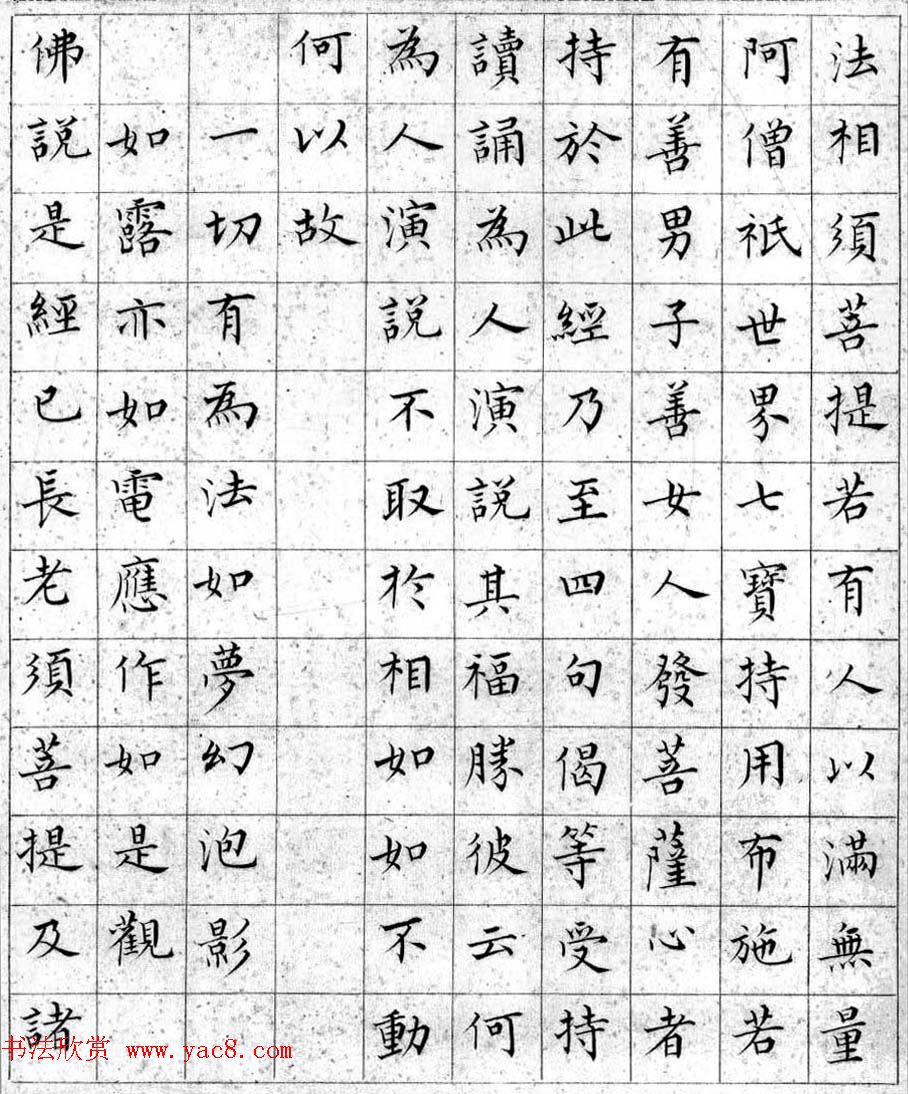 法相須菩提若有人以滿無量
阿僧祇世界七寶持用布施若
有善男子善女人發菩薩心者
持於此經乃至四句偈等受持
讀誦為人演說其福勝彼云何
為人演說不取於相如如不動
何以故
一切有為法如夢幻泡影
如露亦如電應作如是觀
佛說是經已長老須菩提及諸
书法欣赏 www.yac8.com